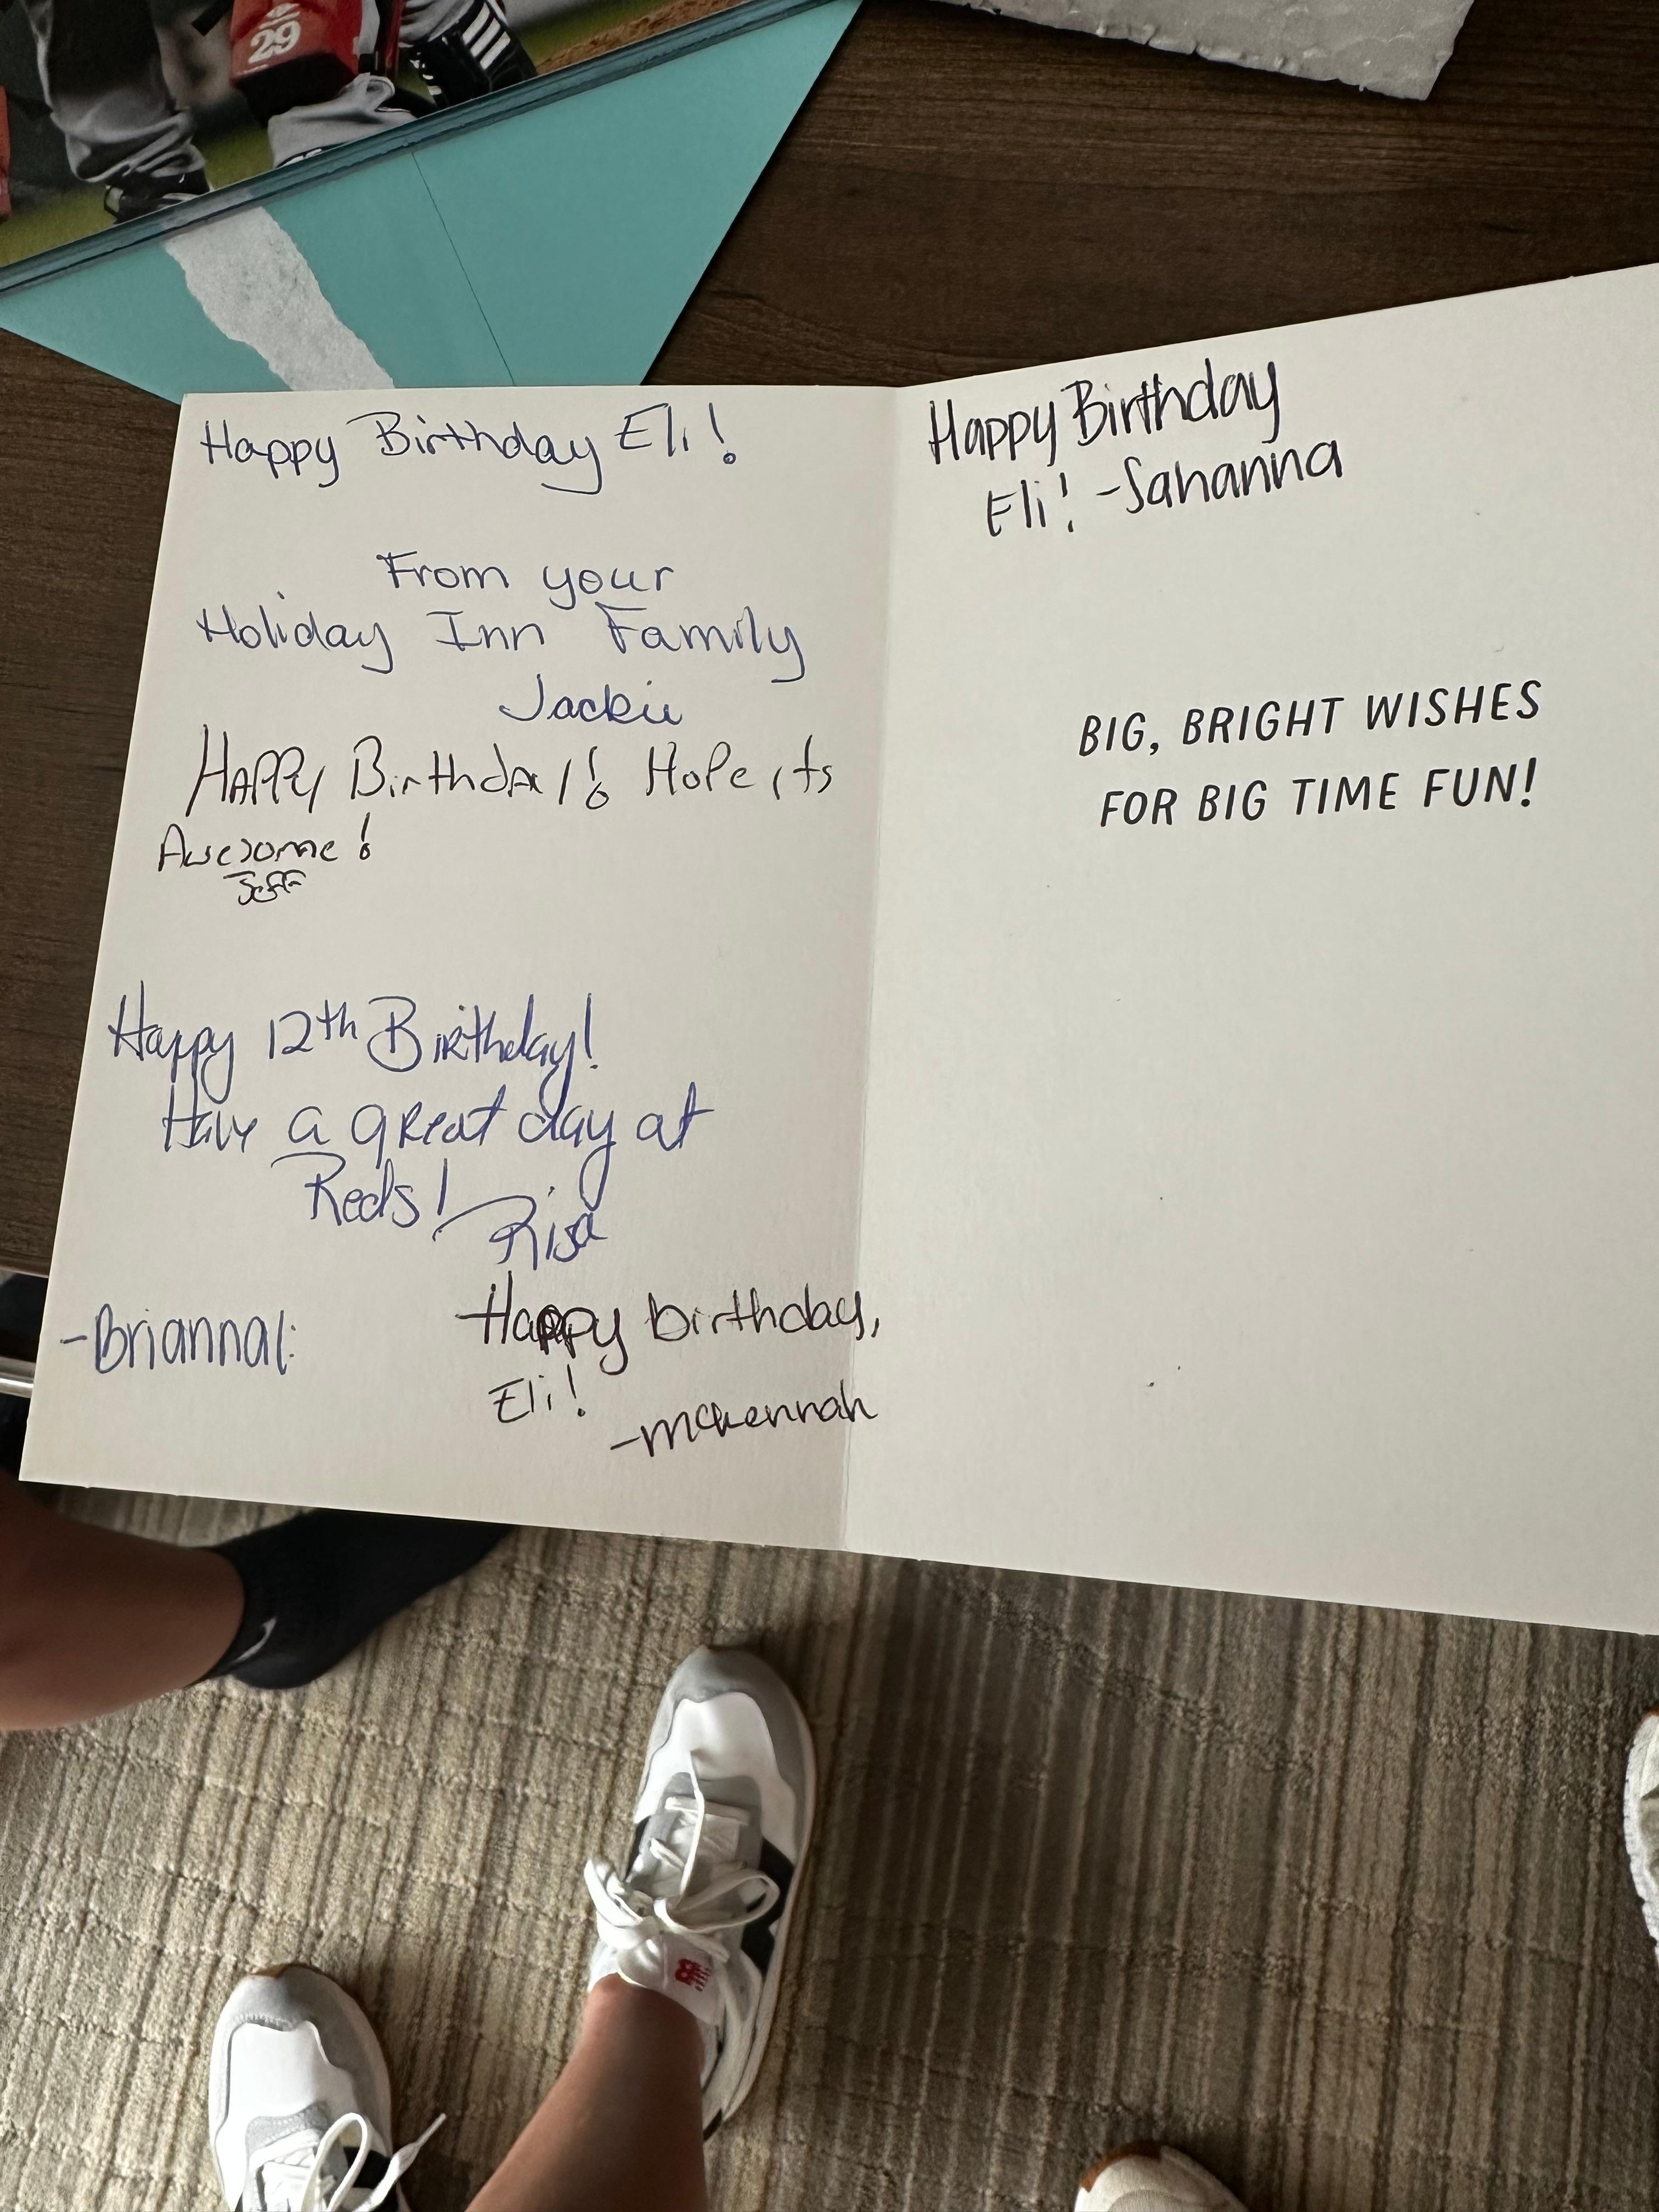 29
Happy Birthday Eli!
From your
Holiday Inn Family
Jackie
HAPPY BirthDAY! Hope its
Awesome!
Jeff
Happy 12th Birthday!
Have a great day at
Reds!
Risa
-Brianna(:
Happy birthday,
Eli!
-mckennah
Happy Birthday
Eli! -Sahanna
BIG, BRIGHT WISHES
FOR BIG TIME FUN!